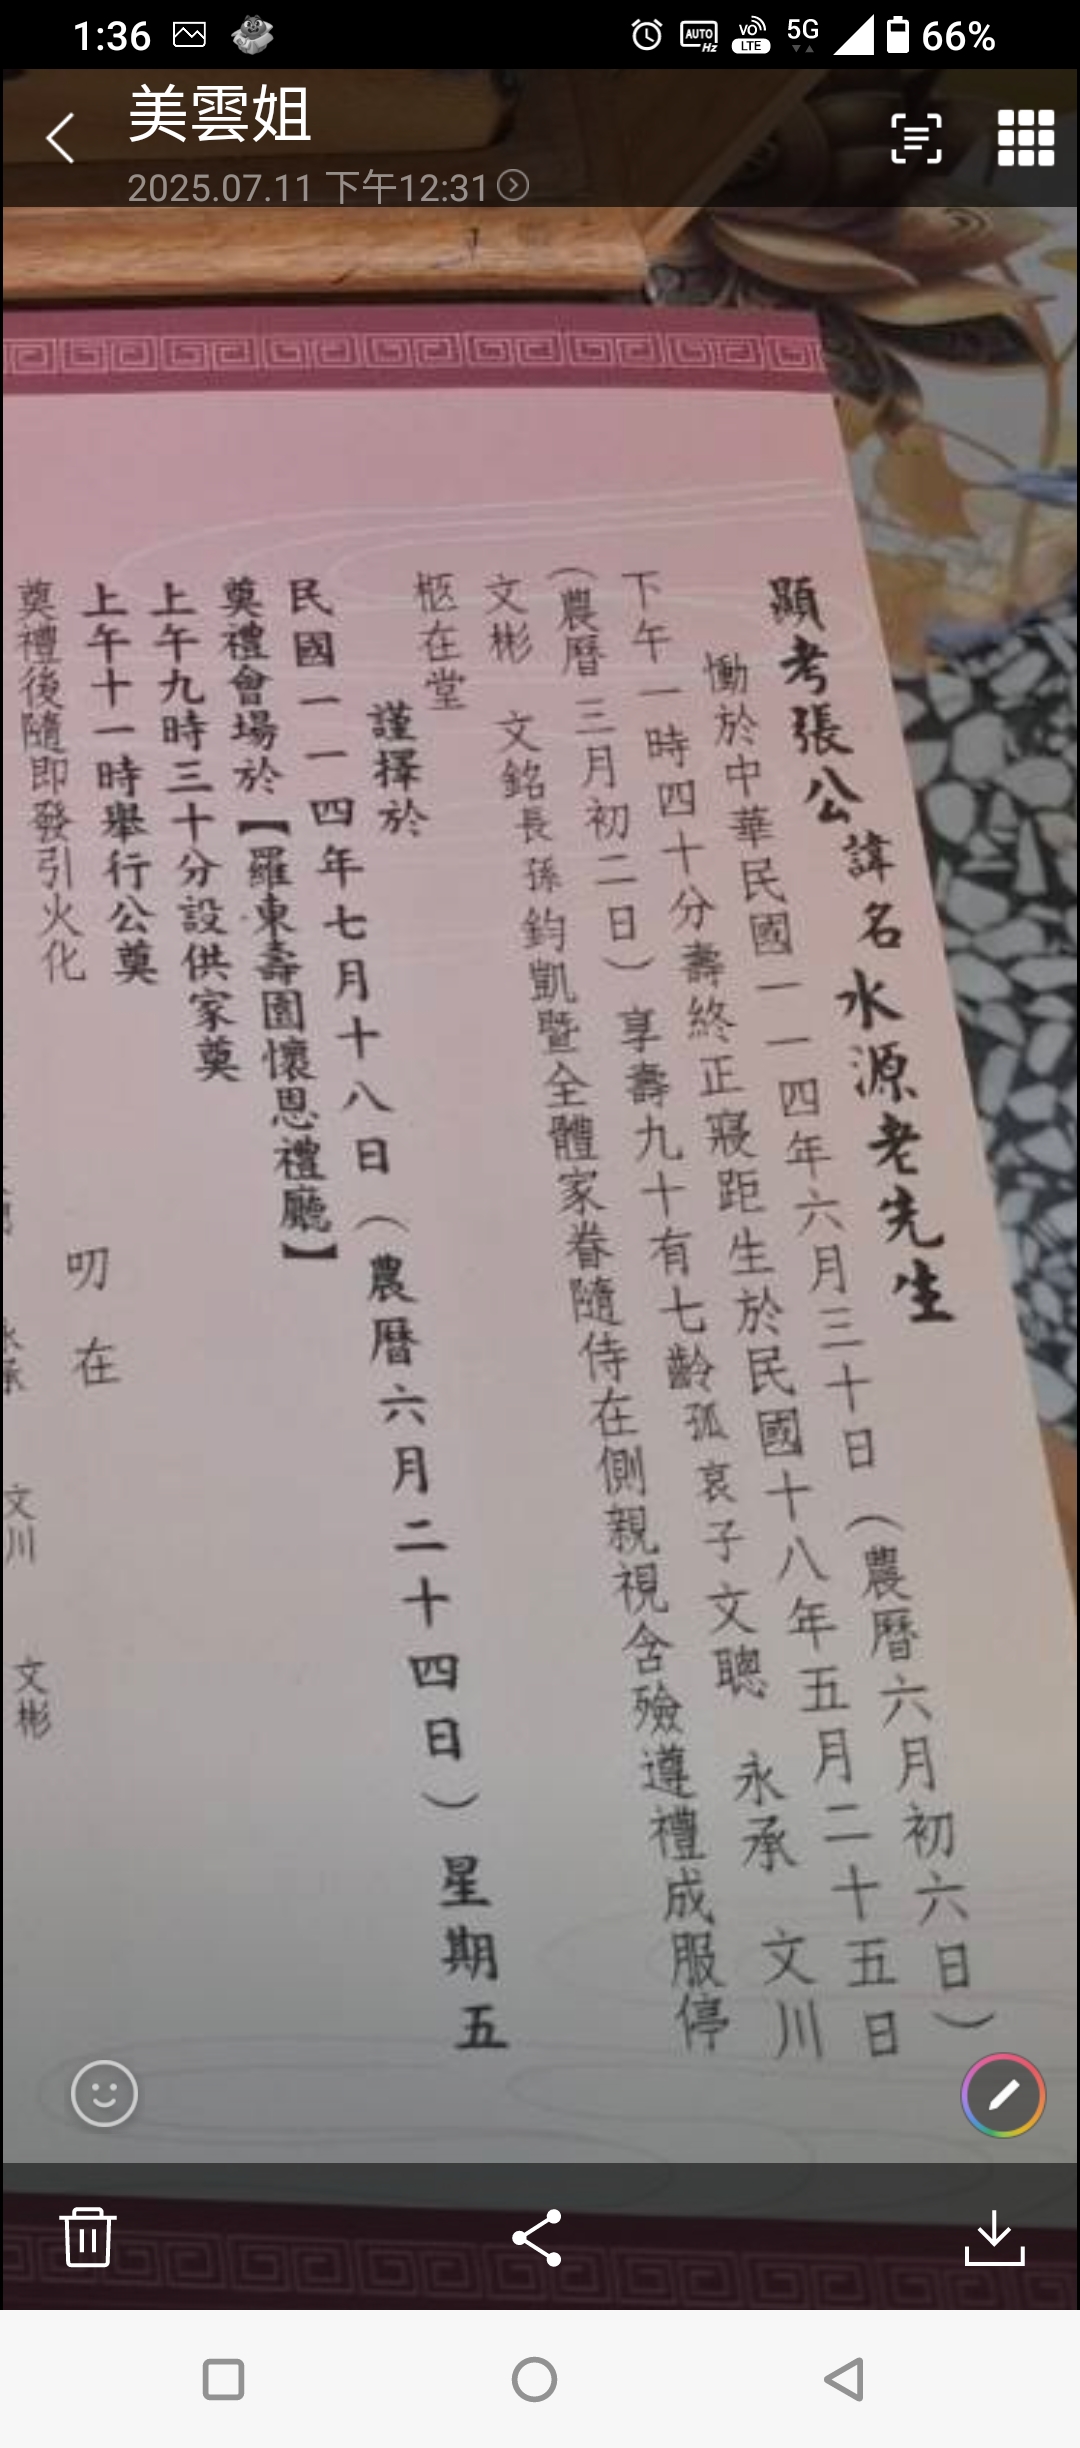 1:36
AUTO Hz
VO LTE
5G
66%
美雲姐
2025.07.11 下午12:31
顯考張公諱名水源老先生
慟於中華民國一一四年六月三十日（農曆六月初六日）
下午一時四十分壽終正寢距生於民國十八年五月二十五日
（農曆三月初二日）享壽九十有七齡孤哀子文聰 永承 文川
文彬 文銘長孫鈞凱暨全體家眷隨侍在側親視含殮遵禮成服停
柩在堂
謹擇於
民國一一四年七月十八日（農曆六月二十四日）星期五
奠禮會場於【羅東壽園懷恩禮廳】
上午九時三十分設供家奠
上午十一時舉行公奠
奠禮後隨即發引火化
叨在
文川 文彬